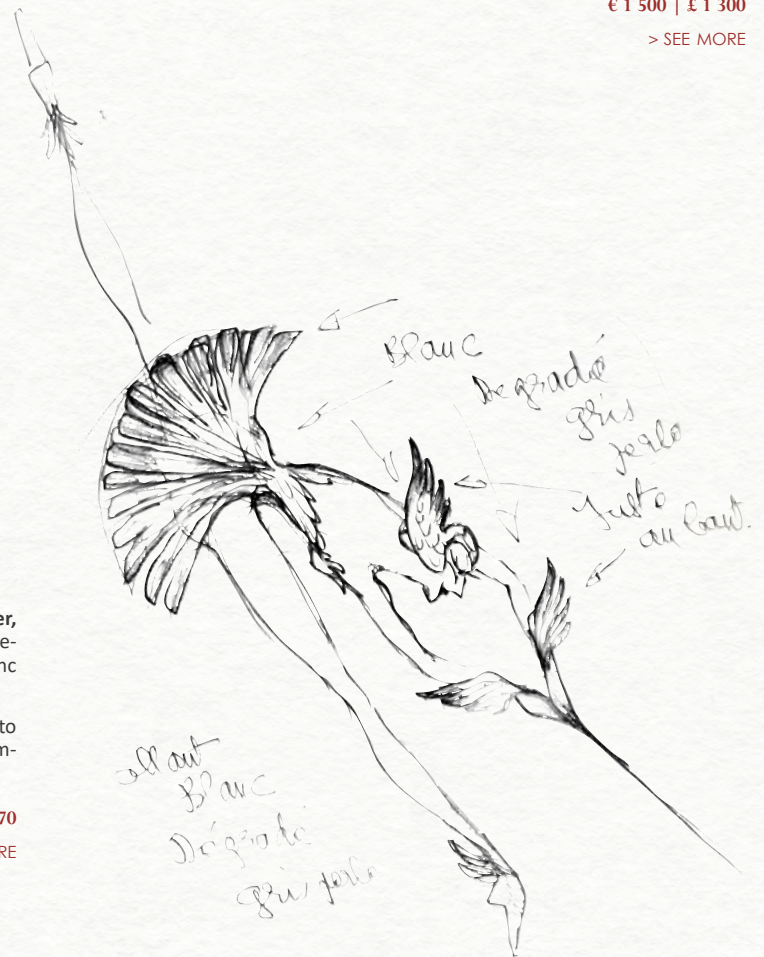 € 1 500 | £ 1 300
> SEE MORE
Blanc
Dégradé
gris
perle
Juste
au bout.
er,
e-
nc
to
m-
70
RE
collant
Blanc
Dégradé
gris perle